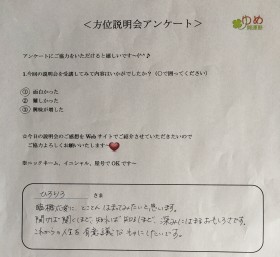 ＜方位説明会アンケート＞
ゆめ
開運館
アンケートにご協力をいただけると嬉しいです～(^^♪
1.今回の説明会を受講してみて内容はいかがでしたか？（〇で囲ってください）
① 面白かった
② 難しかった
③ 興味が増した
☆今日の説明会のご感想を Web サイトでご紹介させていただきたいので
ご協力よろしくお願いいたします
※ニックネーム、イニシャル、屋号でOKです～
ひろりろ さま
臨機応変に、とことんはまってみたいと思います。
聞けば聞くほど、知れば知るほど、深みにはまるおもしろさです。
これからの人生を有意義なものにしたいです。